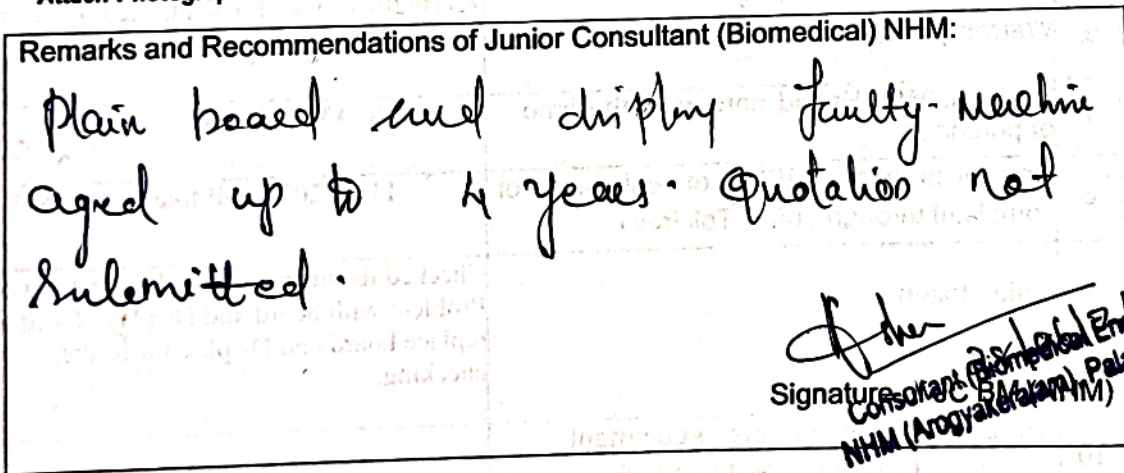 Remarks and Recommendations of Junior Consultant (Biomedical) NHM:
Plain board and display faulty. Machine
aged up to 4 years. Quotation not
submitted.
Signature
Consultant (Biomedical
NHM (Arogyakeralam), Pala